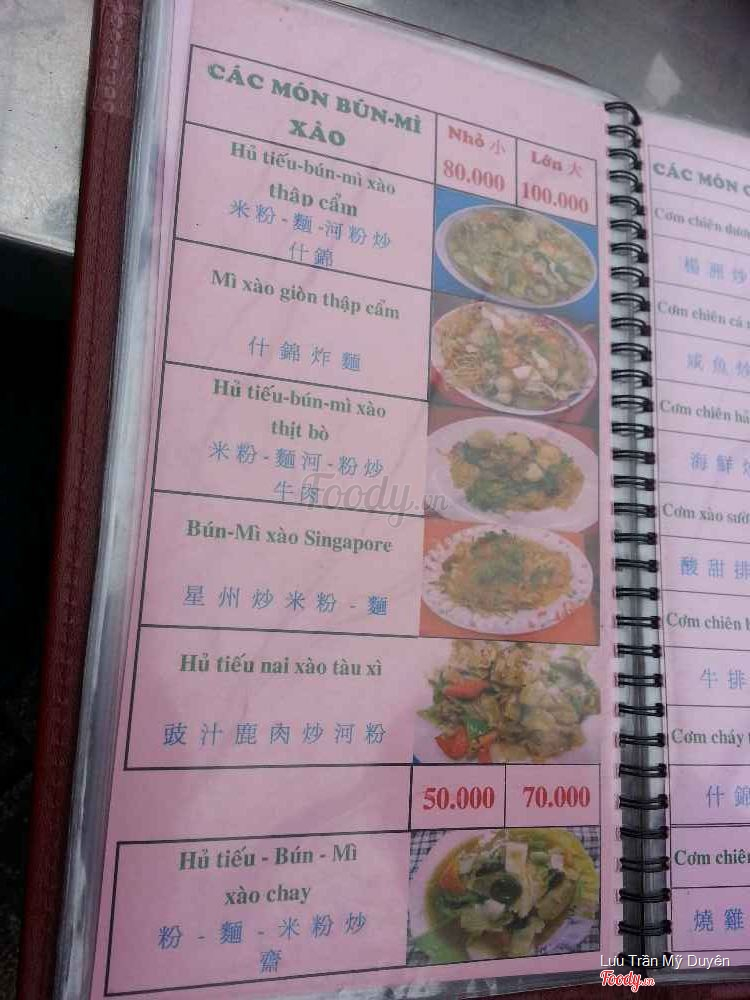 CÁC MÓN BÚN-MÌ
XÀO
Nhỏ 小
Lớn 大
80.000
100.000
Hủ tiếu-bún-mì xào
thập cẩm
米粉-麵-河粉炒
什錦
Mì xào giòn thập cẩm
什錦炸麵
Hủ tiếu-bún-mì xào
thịt bò
米粉-麵河-粉炒
牛肉
Bún-Mì xào Singapore
星州炒米粉-麵
Hủ tiếu nai xào tàu xì
豉汁鹿肉炒河粉
50.000
70.000
Hủ tiếu - Bún - Mì
xào chay
粉-麵-米粉炒
齋
CÁC MÓN
Cơm chiên
楊洲炒
Cơm chiên cá
咸魚炒
Cơm chiên
海鮮
Cơm xào
酸甜排
Cơm chiên
牛排
Cơm cháy
什錦
Cơm chiên
燒雞
Foody.vn
Lưu Trần Mỹ Duyên
Foody.vn